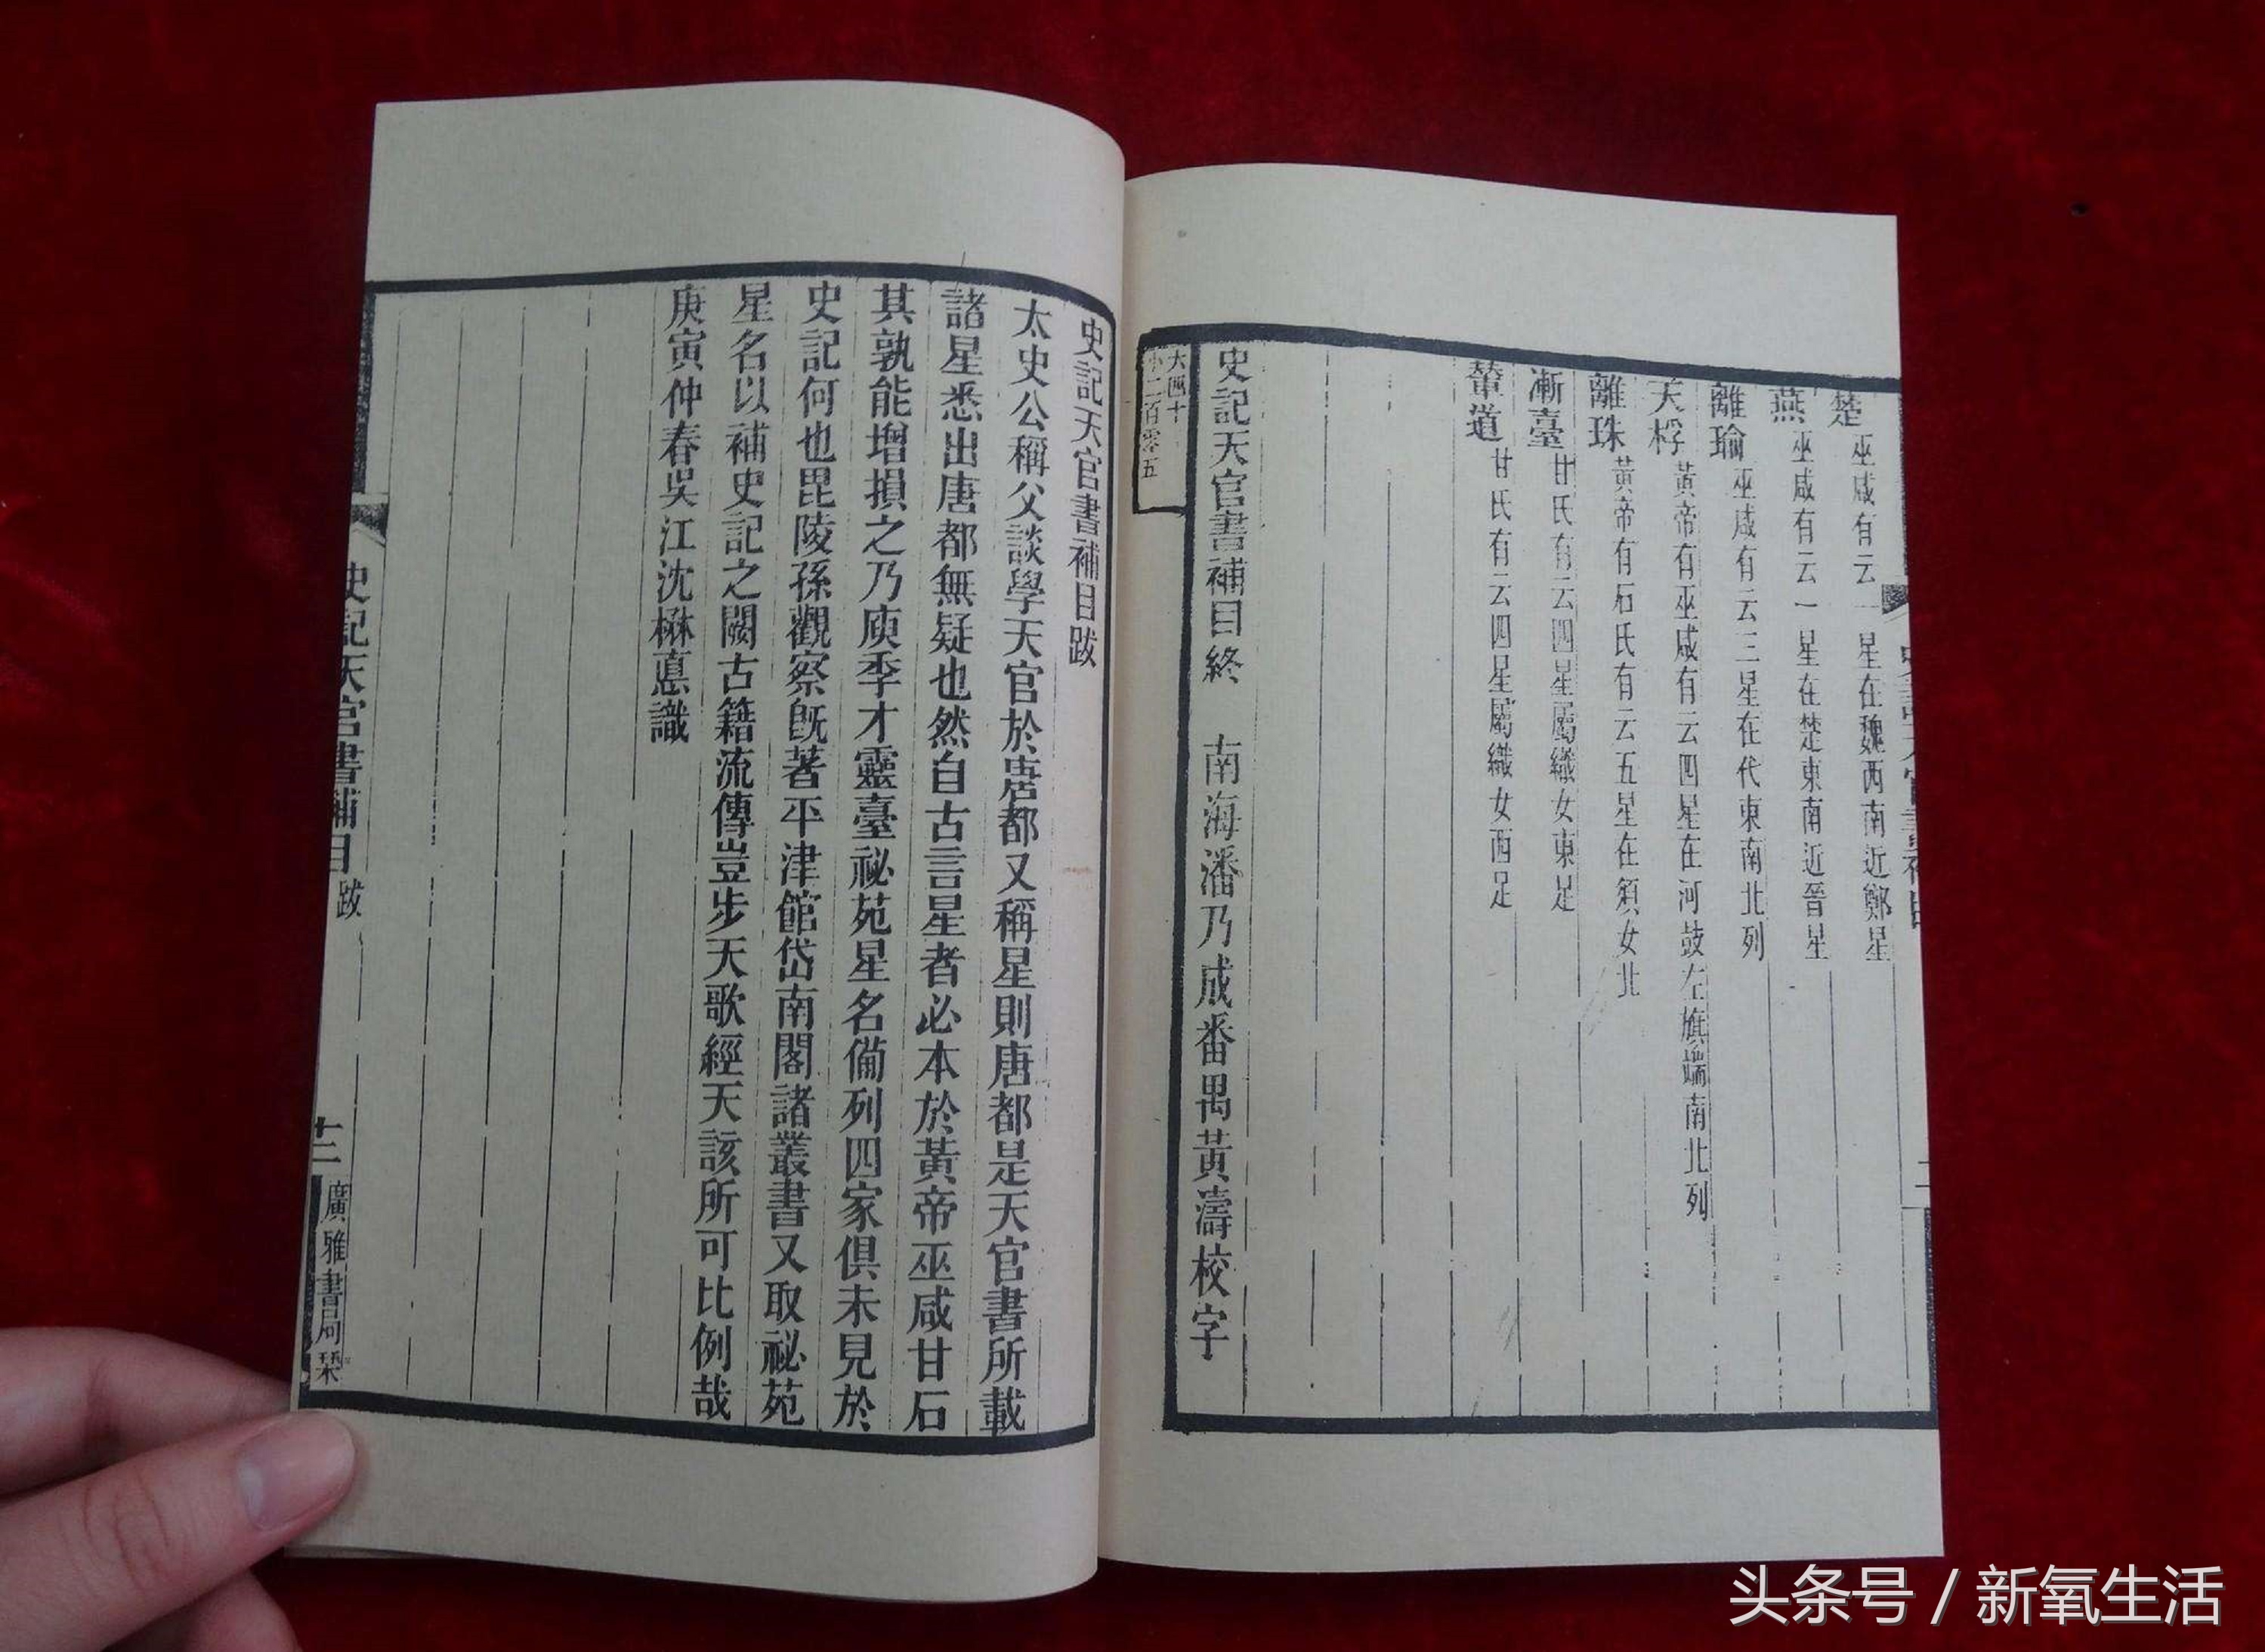 楚 巫咸有云一星在魏西南近鄭星
燕 巫咸有云一星在楚東南近晉星
離瑜 巫咸有云三星在代東南北列
天桴 黃帝有巫咸有云四星在河鼓左旗端南北列
離珠 黃帝有石氏有云五星在須女北
漸臺 甘氏有云四星屬織女東足
輦道 甘氏有云四星屬織女西足
史記天官書補目終 南海潘乃成番禺黃濤校字
大四十
小二百零五
史記天官書補目跋
太史公稱父談學天官於唐都又稱星則唐都是天官書所載
諸星悉出唐都無疑也然自古言星者必本於黃帝巫咸甘石
其孰能增損之乃庾季才靈臺祕苑星名備列四家俱未見於
史記何也毘陵孫觀察旣著平津館岱南閣諸叢書又取祕苑
星名以補史記之闕古籍流傳豈步天歌經天該所可比例哉
庚寅仲春吳江沈楙悳識
史記天官書補目 跋
十二
廣雅書局栞
头条号 / 新氧生活